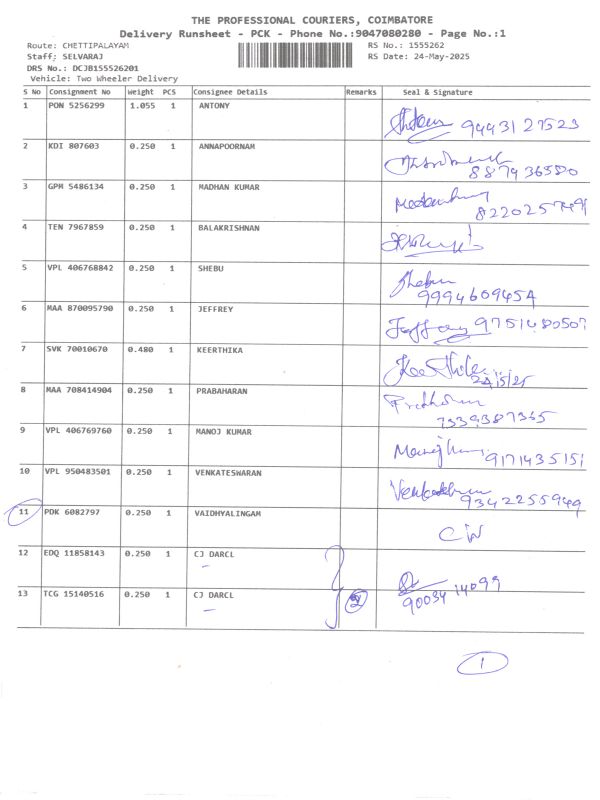 THE PROFESSIONAL COURIERS, COIMBATORE
Delivery Runsheet - PCK - Phone No.:9047080280 - Page No.:1
Route: CHETTIPALAYAM RS No.: 1555262
Staff: SELVARAJ RS Date: 24-May-2025
DRS No.: DCJB155526201
Vehicle: Two Wheeler Delivery
S No Consignment No Weight PCS Consignee Details Remarks Seal & Signature
1 PON 5256299 1.055 1 ANTONY
9443127523
2 KDI 807603 0.250 1 ANNAPOORNAM
8879436580
3 GPM 5486134 0.250 1 MADHAN KUMAR
4 TEN 7967859 0.250 1 BALAKRISHNAN
5 VPL 406768842 0.250 1 SHEBU
Shebu
6 MAA 870095790 0.250 1 JEFFREY
9751480507
7 SVK 70010670 0.480 1 KEERTHIKA
24/5/25
8 MAA 708414904 0.250 1 PRABAHARAN
7339387365
9 VPL 406769760 0.250 1 MANOJ KUMAR
9171435151
10 VPL 950483501 0.250 1 VENKATESWARAN
9342255949
11 PDK 6082797 0.250 1 VAIDHYALINGAM
CW
12 EDQ 11858143 0.250 1 CJ DARCL
90034 14099
13 TCG 15140516 0.250 1 CJ DARCL
1